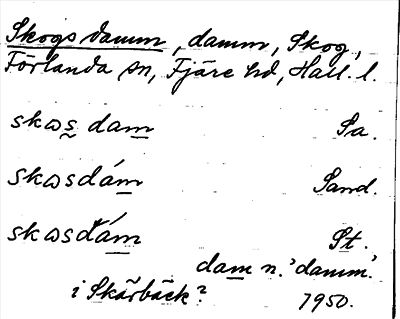 Skogs damm, damm, Skog,
Förlanda sn, Fjäre hd, Hall. l.
skɷs̰ dam̲ Sa.
skɷsdám̲ Sand.
skɷsdám̲ St.
dam̲ n. 'damm'.
i Skärbäck? 1950.